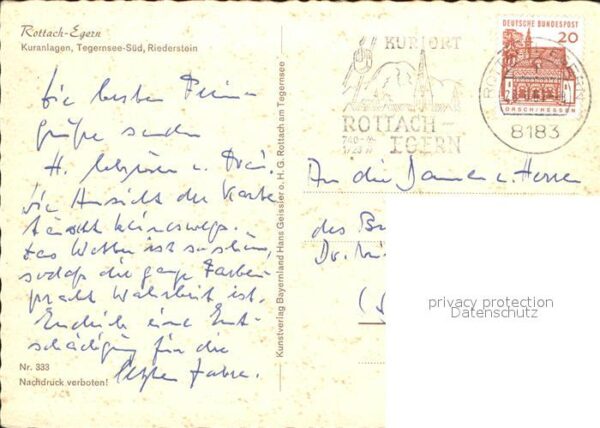 Rottach-Egern
Kuranlagen, Tegernsee-Süd, Riederstein
Die besten Ferien
grüße senden
H. u. Frau.
Die Ansicht der Karte
täuscht keineswegs.
Das Wetter ist so schön,
sodaß die ganze Farben
pracht Wahrheit ist.
Endlich eine Ent-
schädigung für die
letzten Jahre.
Nr. 333
Nachdruck verboten!
Kunstverlag Bayernland Hans Geissler o. H. G. Rottach am Tegernsee
KURORT
ROTTACH-
EGERN
740-
1723 m
DEUTSCHE BUNDESPOST
20
LORSCH/HESSEN
8183
An die Damen u. Herren
des
Dr.
privacy protection
Datenschutz